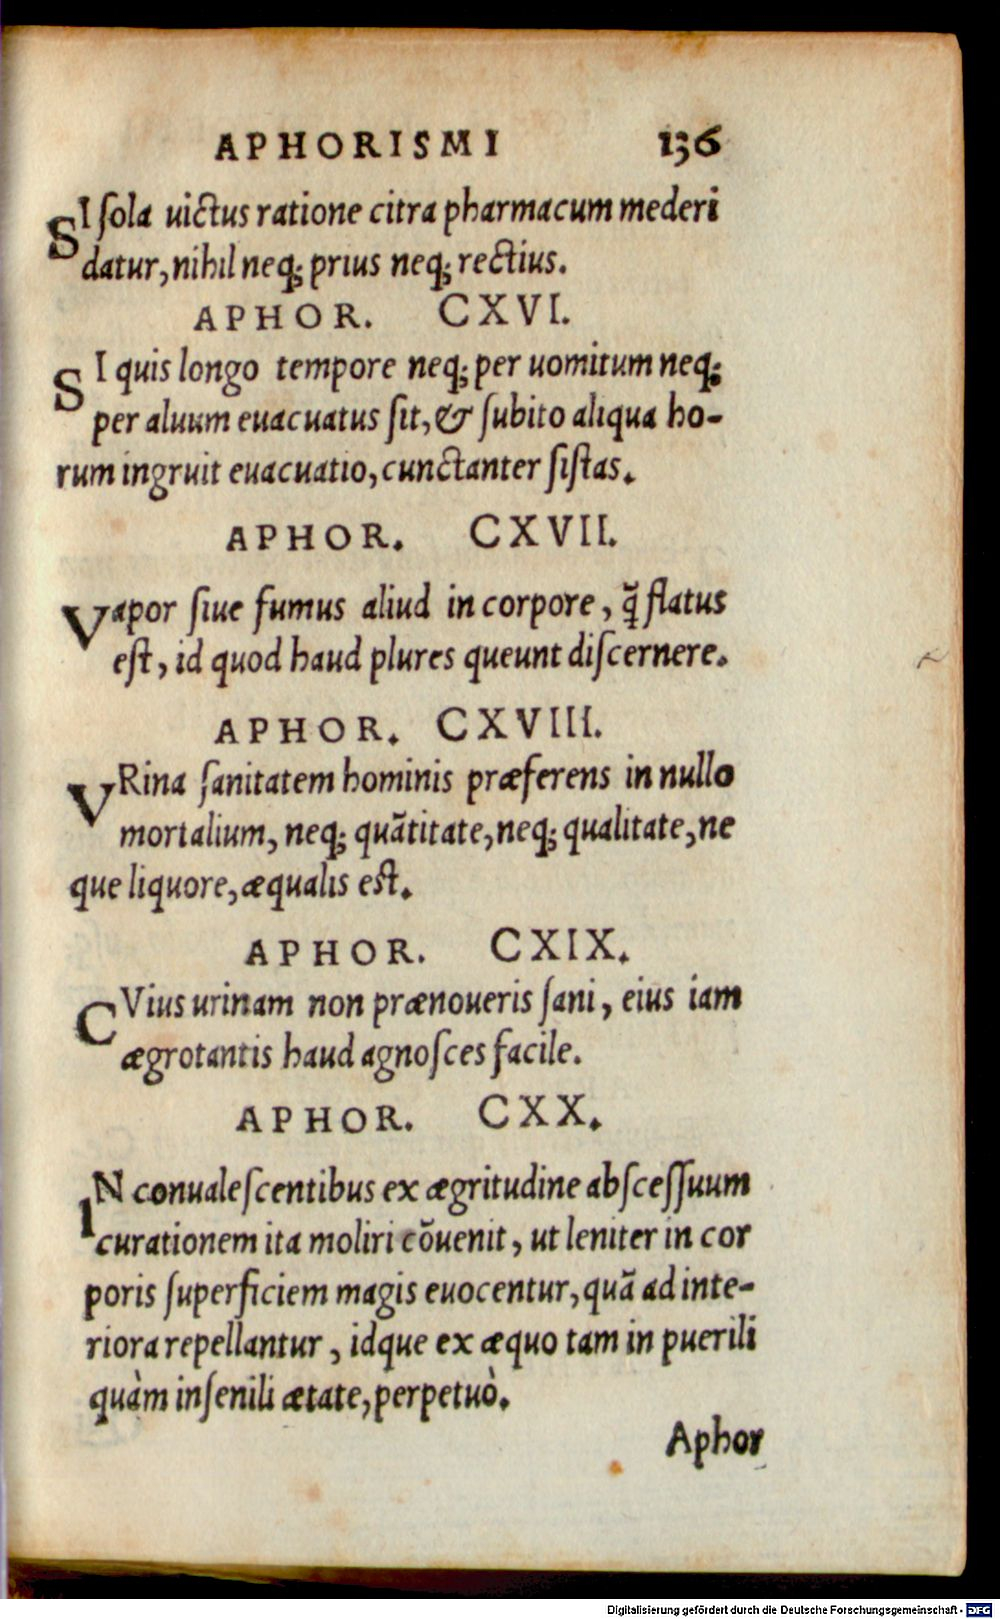 APHORISMI 136
SI ſola uictus ratione citra pharmacum mederi
datur, nihil neq; prius neq; rectius.
APHOR. CXVI.
SI quis longo tempore neq; per uomitum neq;
per aluum euacuatus ſit, & ſubito aliqua ho-
rum ingruit euacuatio, cunctanter ſiſtas.
APHOR. CXVII.
Vapor ſiue fumus aliud in corpore, q̃ flatus
eſt, id quod haud plures queunt diſcernere.
APHOR. CXVIII.
VRina ſanitatem hominis præferens in nullo
mortalium, neq; quãtitate, neq; qualitate, ne
que liquore, æqualis eſt.
APHOR. CXIX.
CVius urinam non prænoueris ſani, eius iam
ægrotantis haud agnoſces facile.
APHOR. CXX.
IN conualeſcentibus ex ægritudine abſceſſuum
curationem ita moliri cõuenit, ut leniter in cor
poris ſuperficiem magis euocentur, quã ad inte-
riora repellantur, idque ex æquo tam in puerili
quàm in ſenili ætate, perpetuò.
Aphor
Digitalisierung gefördert durch die Deutsche Forschungsgemeinschaft - DFG